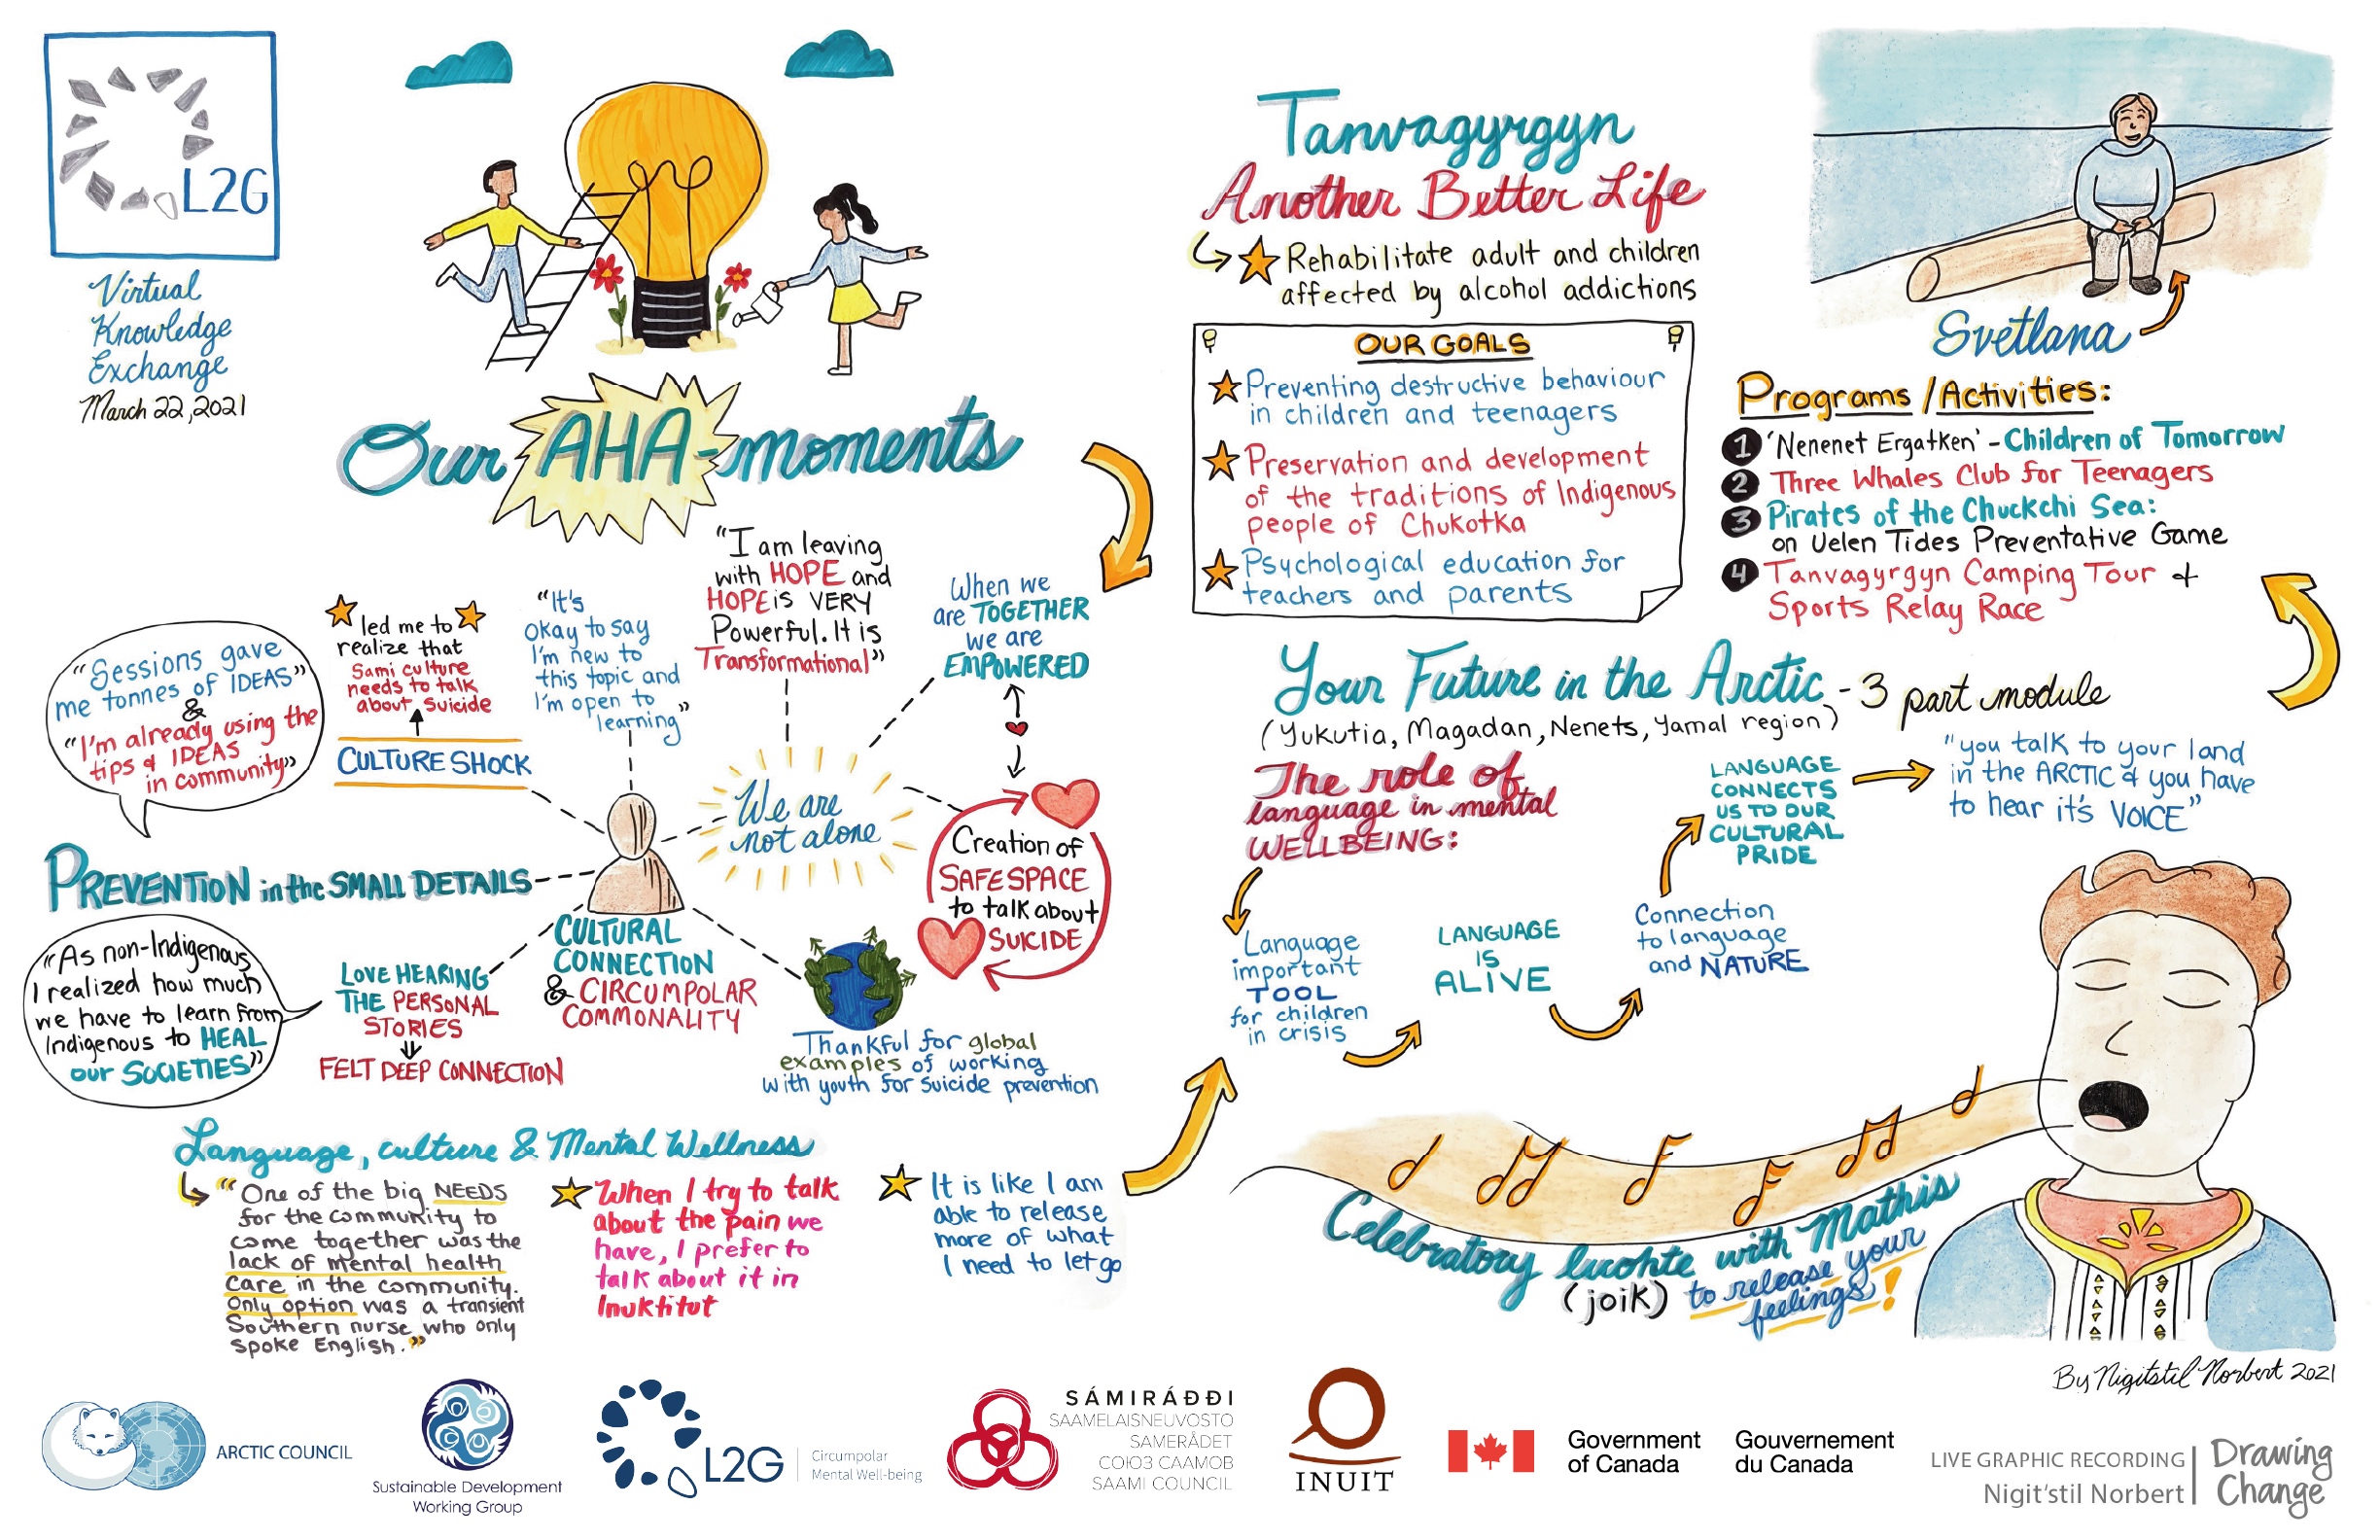 L2G
Virtual
Knowledge
Exchange
March 22, 2021
Our AHA-moments
"Sessions gave
me tonnes of IDEAS"
&
"I'm already using the
tips & IDEAS
in community"
led me to
realize that
Sami culture
needs to talk
about suicide
CULTURE SHOCK
"It's
okay to say
I'm new to
this topic and
I'm open to
learning"
"I am leaving
with HOPE and
HOPE is VERY
Powerful. It is
Transformational"
When we
are TOGETHER
we are
EMPOWERED
We are
not alone
Creation of
SAFE SPACE
to talk about
SUICIDE
PREVENTION in the SMALL DETAILS
"As non-Indigenous
I realized how much
we have to learn from
Indigenous to HEAL
our SOCIETIES"
LOVE HEARING
THE PERSONAL
STORIES
FELT DEEP CONNECTION
CULTURAL
CONNECTION
& CIRCUMPOLAR
COMMONALITY
Thankful for global
examples of working
with youth for suicide prevention
Language, culture & Mental Wellness
"One of the big NEEDS
for the community to
come together was the
lack of mental health
care in the community.
Only option was a transient
Southern nurse who only
spoke English."
When I try to talk
about the pain we
have, I prefer to
talk about it in
Inuktitut
It is like I am
able to release
more of what
I need to let go
Tanvagyrgyn
Another Better Life
Rehabilitate adult and children
affected by alcohol addictions
OUR GOALS
Preventing destructive behaviour
in children and teenagers
Preservation and development
of the traditions of Indigenous
people of Chukotka
Psychological education for
teachers and parents
Svetlana
Programs / Activities:
1 'Nenenet Ergatken' - Children of Tomorrow
2 Three Whales Club for Teenagers
3 Pirates of the Chuckchi Sea:
on Uelen Tides Preventative Game
4 Tanvagyrgyn Camping Tour +
Sports Relay Race
Your Future in the Arctic - 3 part module
(Yukutia, Magadan, Nenets, Yamal region)
The role of
language in mental
WELLBEING:
Language
important
TOOL
for children
in crisis
LANGUAGE
IS
ALIVE
Connection
to language
and NATURE
LANGUAGE
CONNECTS
US TO OUR
CULTURAL
PRIDE
"you talk to your land
in the ARCTIC & you have
to hear it's VOICE"
Celebratory luohte with Mathis
(joik) to release your
feelings!
By Nigitstil Norbert 2021
ARCTIC COUNCIL
Sustainable Development
Working Group
L2G
Circumpolar
Mental Well-being
SÁMIRÁĐĐI
SAAMELAISNEUVOSTO
SAMERÅDET
СОЮЗ СААМОВ
SAAMI COUNCIL
INUIT
Government
of Canada
Gouvernement
du Canada
LIVE GRAPHIC RECORDING
Nigit'stil Norbert
Drawing
Change